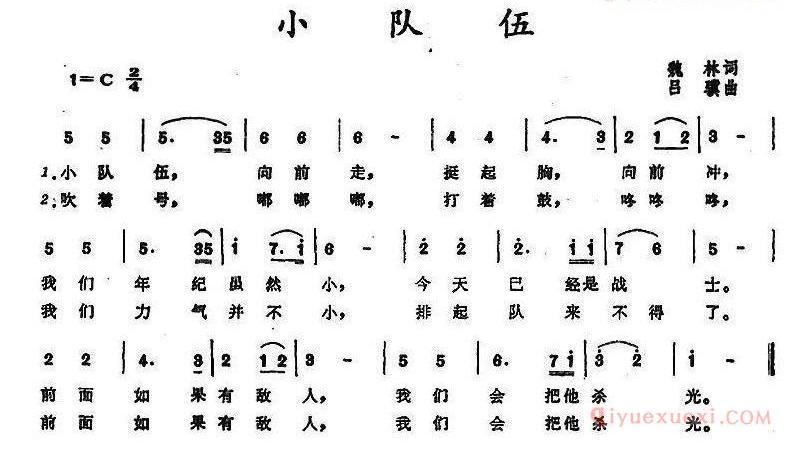 小队伍
1=C 2/4
魏林词
吕骥曲
5 5 | 5. 35 | 6 6 | 6 - | 4 4 | 4. 3 | 2 1 2 | 3 - |
1.小队伍,向前走,挺起胸,向前冲,
2.吹着号,嘟嘟嘟,打着鼓,咚咚咚,
5 5 | 5. 35 | i 7. i | 6 - | 2 2 | 2. i i | 7 6 | 5 - |
我们年纪虽然小,今天已经是战士。
我们力气并不小,排起队来不得了。
2 2 | 4. 3 | 2 1 2 | 3 - | 5 5 | 6. 7 i | 3 2 | i - ‖
前面如果有敌人,我们会把他杀光。
前面如果有敌人,我们会把他杀光。
qiyuexuexi.com